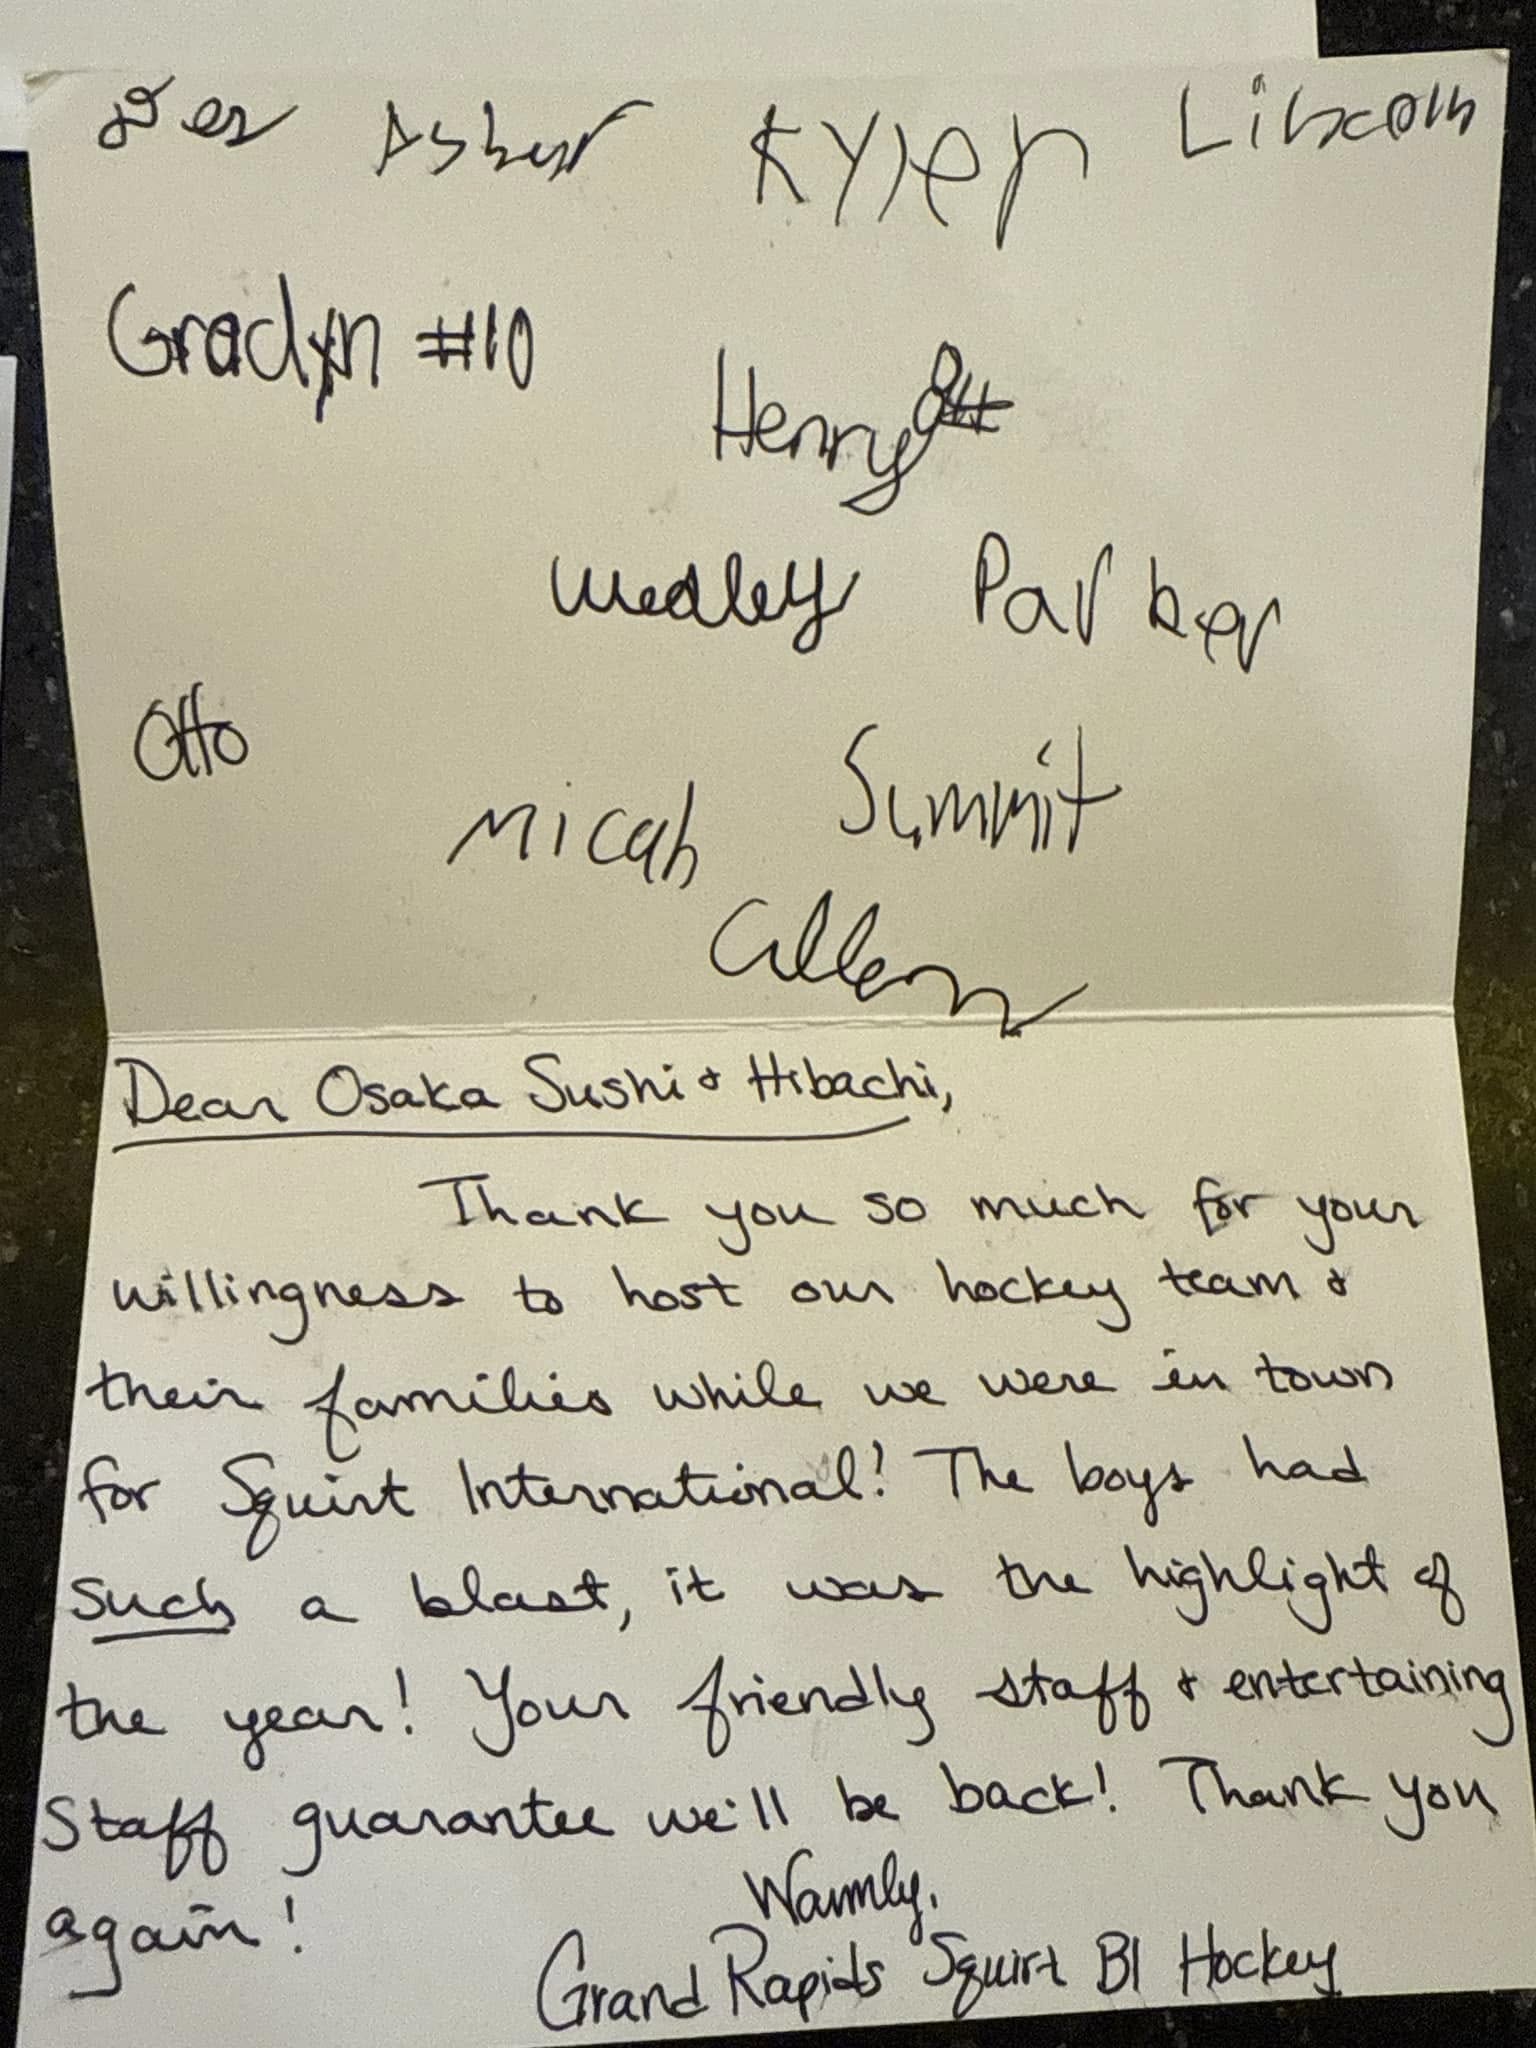 Asher Kyler Lincoln
Gradyn #10
Henry
Medley Parker
Otto
Summit
Micah
Cullen
Dear Osaka Sushi & Hibachi,
Thank you so much for your
willingness to host our hockey team &
their families while we were in town
for Squirt International! The boys had
such a blast, it was the highlight of
the year! Your friendly staff & entertaining
staff guarantee we'll be back! Thank you
again!
Warmly,
Grand Rapids Squirt B1 Hockey